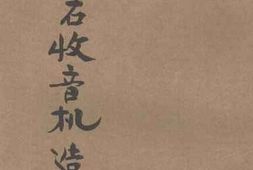 石收音机造